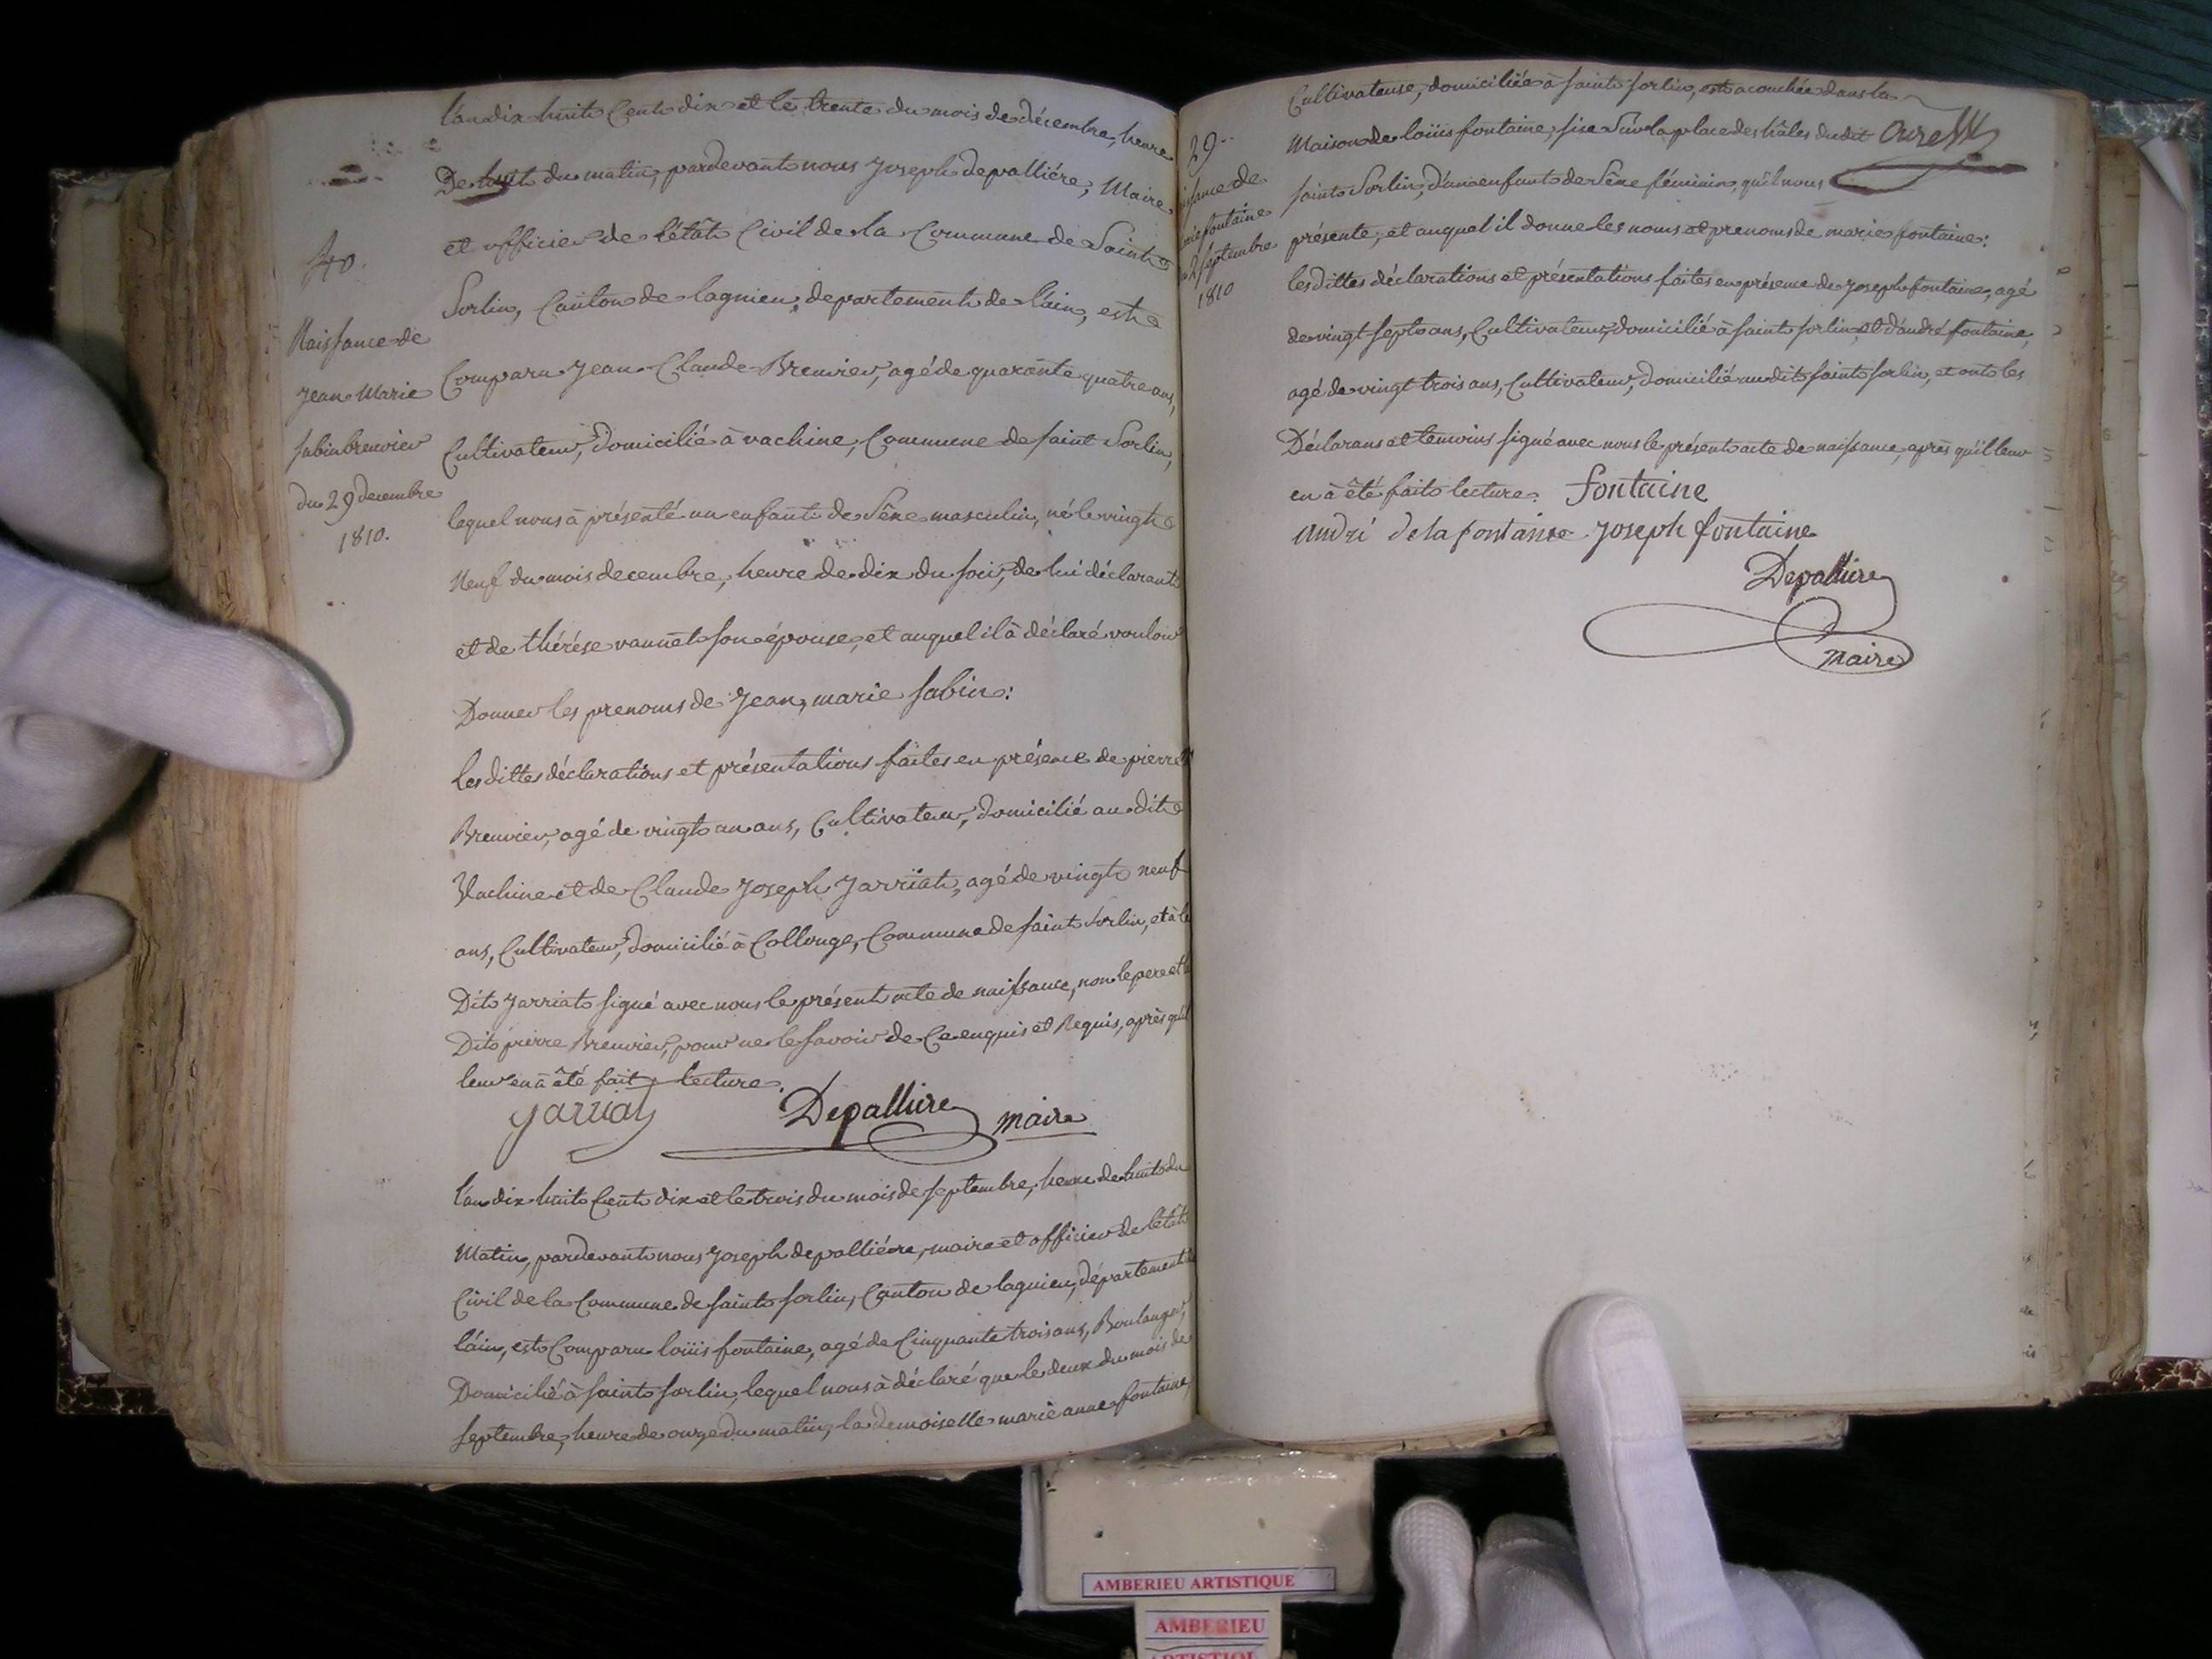 40.
Naissance de
Jean Marie
Sabin brenvier
du 29 decembre
1810.
l'an dix huit Cent dix et le trente du mois de décembre, heure
De huit du matin, pardevant nous Joseph depalliére, Maire
et officier de l'état Civil de la Commune de Saint
Sorlin, Canton de lagnieu, departement de l'ain, est
Comparu Jean Claude Brenvier, agé de quarante quatre ans,
Cultivateur, domicilié à vachine, Commune de saint Sorlin,
lequel nous à présenté un enfant de Sêxe masculin, né le vingt
Neuf du mois decembre, heure de dix du soir, de lui déclarant
et de thérése vannet son épouse, et auquel il à déclaré vouloir
Donner les prenoms de Jean, marie sabin:
les dittes déclarations et présentations faites en présence de pierre
Brenvier, agé de vingt un ans, Cultivateur, domicilié au dit
Vachine et de Claude Joseph Jarriat, agé de vingt neuf
ans, Cultivateur, domicilié à Collonge, Commune de saint Sorlin, et à le
Dit Jarriat signé avec nous le présent acte de naissance, non le pere et le
Dit pierre Brenvier, pour ne le savoir de Ce enquis et Requis, après qu'il
leur en à été fait lecture.
Jarriat Depalliere maire
l'an dix huit Cent dix et le trois du mois de septembre, heure de huit du
Matin, pardevant nous Joseph depalliére, maire et officier de l'état
Civil de la Commune de saint sorlin, Canton de lagnieu, département de
l'ain, est Comparu loüis fontaine, agé de Cinquante trois ans, Boulanger,
Domicilié à saint sorlin, lequel nous à déclaré que le deux du mois de
septembre, heure de onze du matin, la demoiselle marie anne fontaine
29
de
fontaine
septembre
1810
Cultivateuse, domiciliée à saint sorlin, est acouchée dans la
Maison de loüis fontaine, sise Sur la place des hâles du dit
saint Sorlin, d'un enfant de Sêxe féminin, qu'il nous
présente, et auquel il donne les noms et prenoms de marie fontaine:
les dittes déclarations et présentations faites en présence de Joseph fontaine, agé
de vingt sept ans, Cultivateur, domicilié à saint sorlin et d'andré fontaine,
agé de vingt trois ans, Cultivateur, domicilié au dit saint sorlin, et ont les
Déclarans et temoins signé avec nous le présent acte de naissance, après qu'il leur
en à été fait lecture. fontaine
andri de la fontaine Joseph fontaine
Depalliere
Maire
AMBERIEU ARTISTIQUE
AMBERIEU
ARTISTIQUE